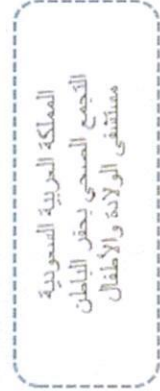 المملكة العربية السعودية
التجمع الصحي بحفر الباطن
مستشفى الولادة والأطفال